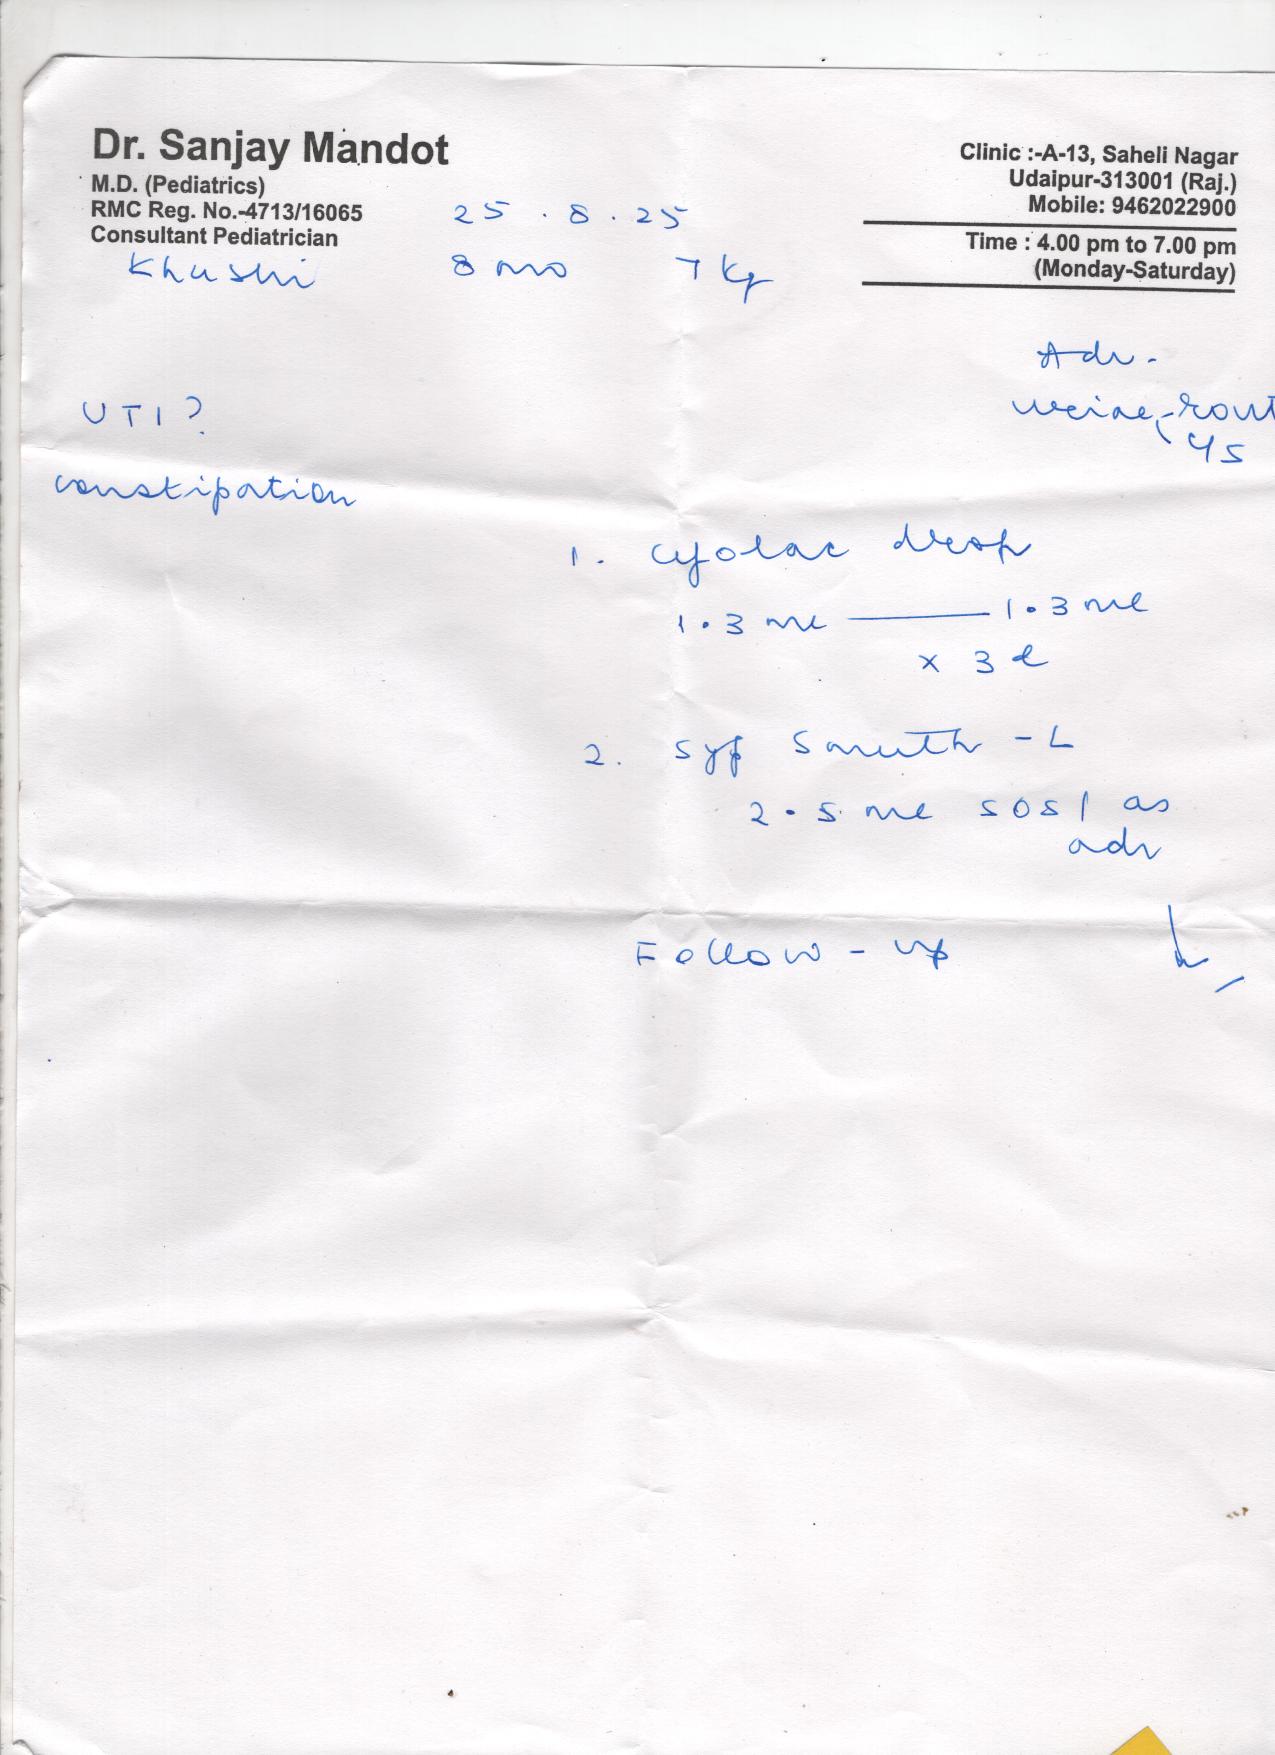 Dr. Sanjay Mandot
M.D. (Pediatrics)
RMC Reg. No.-4713/16065
Consultant Pediatrician
Clinic :-A-13, Saheli Nagar
Udaipur-313001 (Raj.)
Mobile: 9462022900
Time : 4.00 pm to 7.00 pm
(Monday-Saturday)
25 . 8 . 25
Khushi 8 mo 7 kg
Adv.
UTI?
urine - rout
constipation
1. drop
1.3 ml — 1.3 ml
x 3 d
2. Syp Smuth - L
2.5 ml sos / as
adv
Follow - up